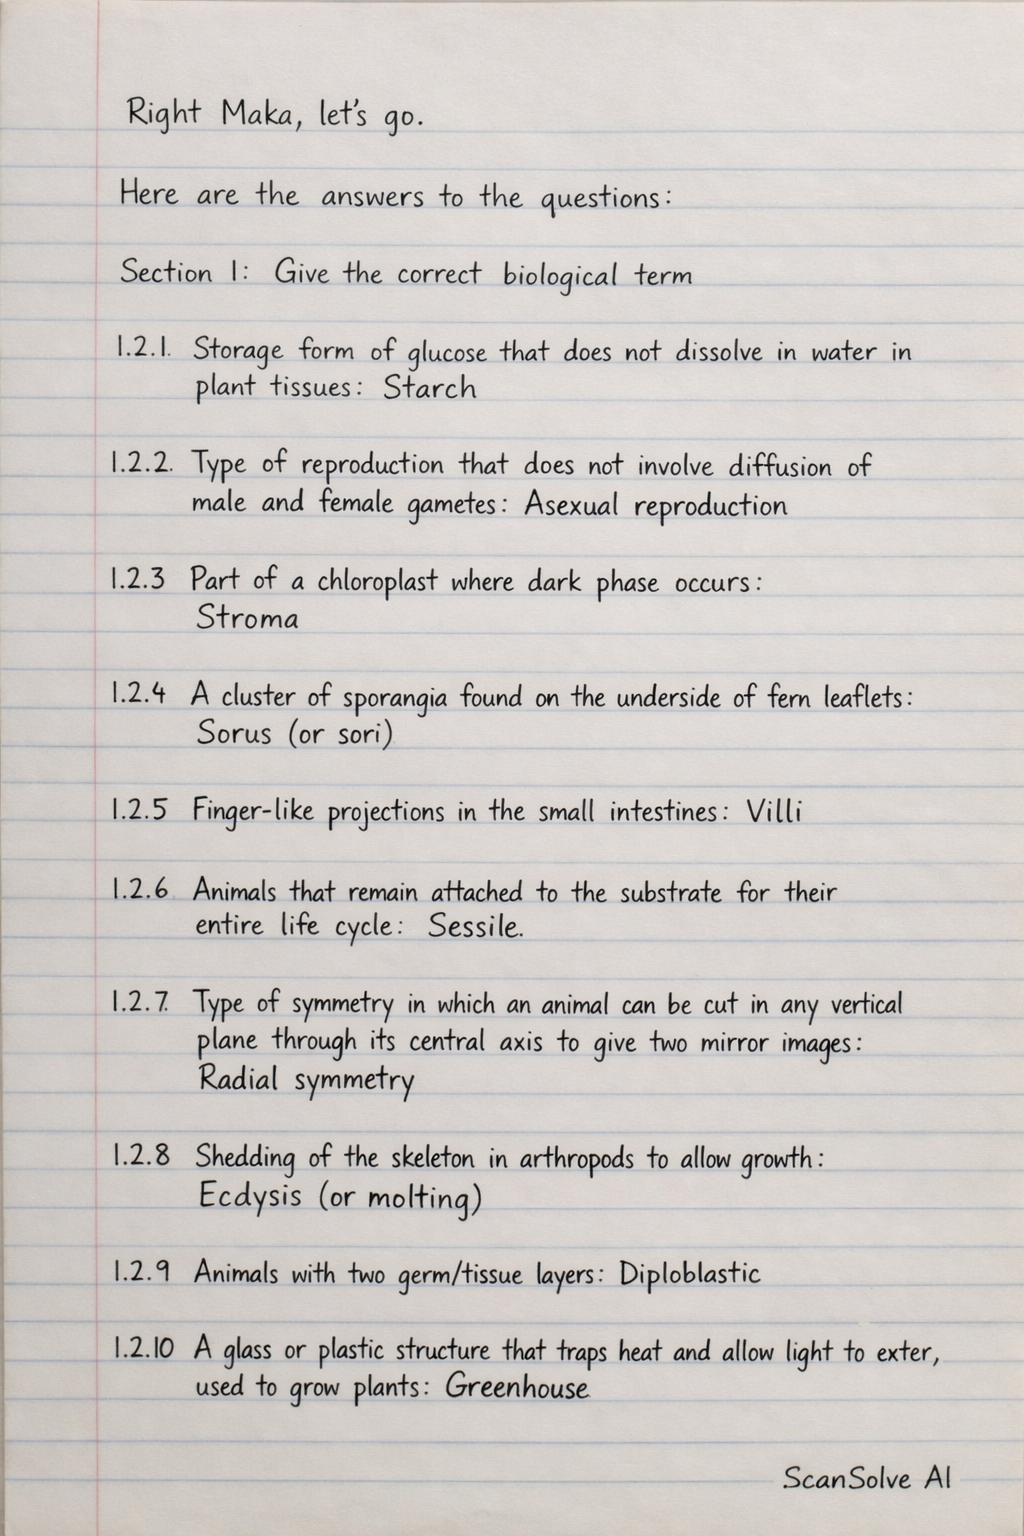 Right Maka, let's go.
Here are the answers to the questions:
Section 1: Give the correct biological term
1.2.1. Storage form of glucose that does not dissolve in water in
plant tissues: Starch
1.2.2. Type of reproduction that does not involve diffusion of
male and female gametes: Asexual reproduction
1.2.3 Part of a chloroplast where dark phase occurs:
Stroma
1.2.4 A cluster of sporangia found on the underside of fern leaflets:
Sorus (or sori)
1.2.5 Finger-like projections in the small intestines: Villi
1.2.6 Animals that remain attached to the substrate for their
entire life cycle: Sessile.
1.2.7. Type of symmetry in which an animal can be cut in any vertical
plane through its central axis to give two mirror images:
Radial symmetry
1.2.8 Shedding of the skeleton in arthropods to allow growth:
Ecdysis (or molting)
1.2.9 Animals with two germ/tissue layers: Diploblastic
1.2.10 A glass or plastic structure that traps heat and allow light to exter,
used to grow plants: Greenhouse
ScanSolve AI